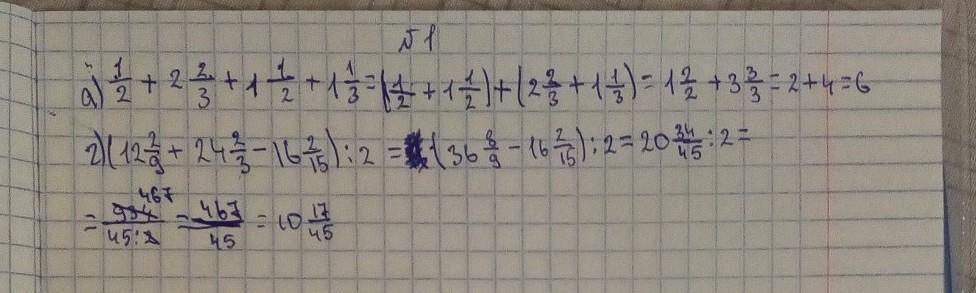 №1
а) 1/2 + 2 2/3 + 1 1/2 + 1 1/3 = (1/2 + 1 1/2) + (2 2/3 + 1 1/3) = 1 2/2 + 3 3/3 = 2 + 4 = 6
г) (12 2/9 + 24 2/3 - 16 2/15) : 2 = (36 8/9 - 16 2/15) : 2 = 20 34/45 : 2 =
= 934 467/45 : 2 = 467/45 = 10 17/45